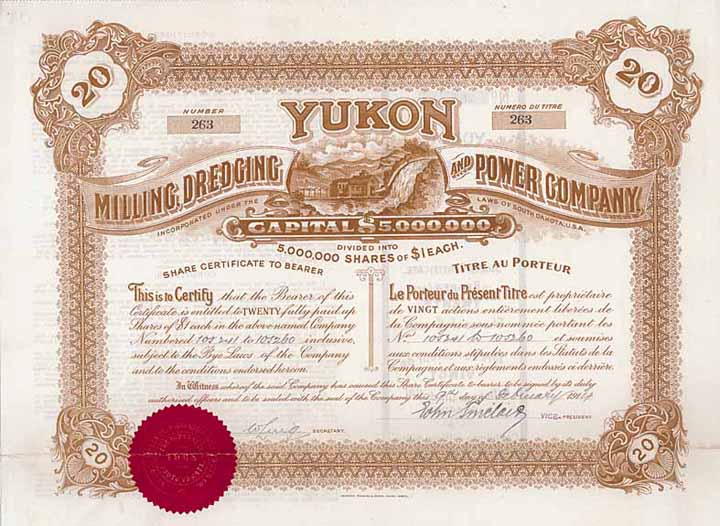 20
20
NUMBER
263
YUKON
NUMERO DU TITRE
263
MILLING, DREDGING AND POWER COMPANY.
INCORPORATED UNDER THE LAWS OF SOUTH DAKOTA, U.S.A.
CAPITAL $5,000,000
DIVIDED INTO
5,000,000 SHARES OF $1 EACH.
SHARE CERTIFICATE TO BEARER
This is to Certify that the Bearer of this
Certificate is entitled to TWENTY fully paid up
Shares of $1 each in the above named Company
Numbered 105241 to 105260 inclusive,
subject to the Bye Laws of the Company
and to the conditions endorsed hereon.
TITRE AU PORTEUR
Le Porteur du Présent Titre est propriétaire
de VINGT actions entièrement libérées de
la Compagnie sous-nommée portant les
Nos 105241 to 105260 et soumises
aux conditions stipulées dans les Statuts de la
Compagnie et aux règlements endossés ci derrière.
In Witness whereof the said Company has caused this Share Certificate to bearer to be signed by its duly
authorised officers and to be sealed with the seal of the Company this 9th day of February 19
John Sinclair
VICE-PRESIDENT
SECRETARY.
20
20